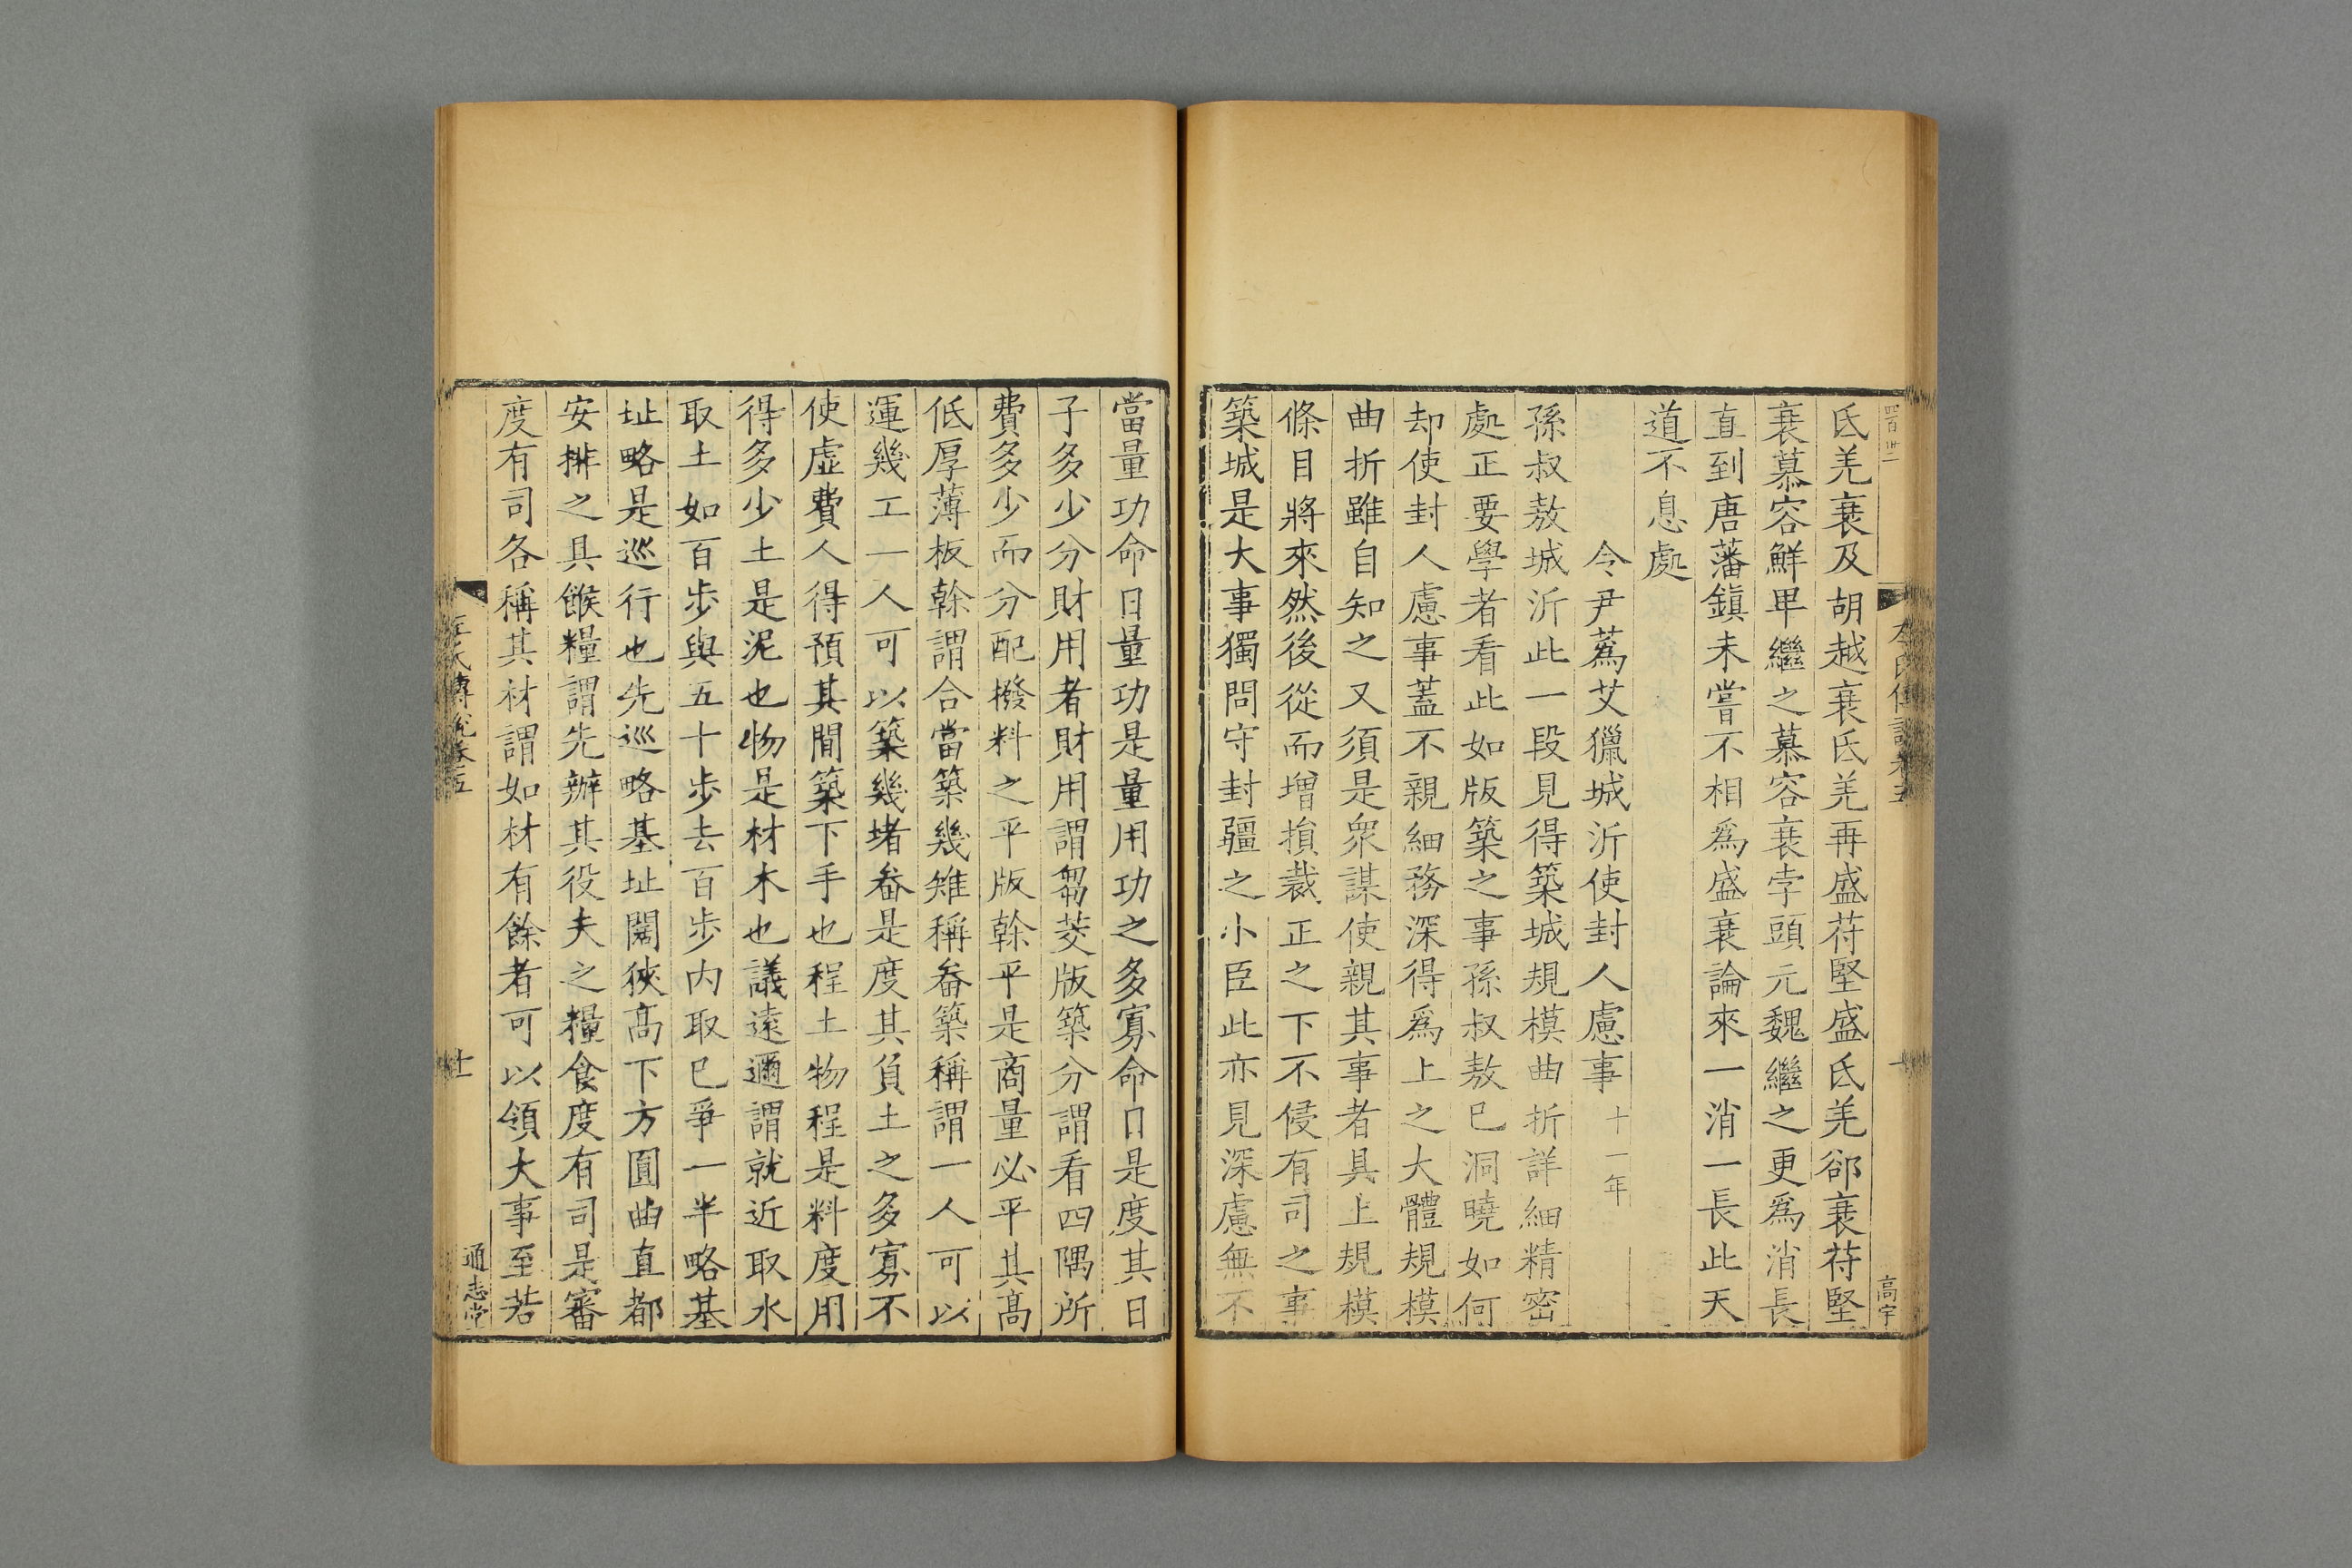 四百卅二
左氏傳說卷五
高宇
氐羌衰及胡越衰氐羌再盛苻堅盛氐羌郤衰苻堅
衰慕容鮮卑繼之慕容衰孛頭元魏繼之更爲消長
直到唐藩鎮未嘗不相爲盛衰論來一消一長此天
道不息處
令尹蒍艾獵城沂使封人慮事十一年
孫叔敖城沂此一段見得築城規模曲折詳細精密
處正要學者看此如版築之事孫叔敖已洞曉如何
却使封人慮事蓋不親細務深得爲上之大體規模
曲折雖自知之又須是衆謀使親其事者具上規模
條目將來然後從而增損裁正之下不侵有司之事
築城是大事獨問守封疆之小臣此亦見深慮無不
當量功命日量功是量用功之多寡命日是度其日
子多少分財用者財用謂芻茭版築分謂看四隅所
費多少而分配撥料之平版榦平是商量必平其髙
低厚薄板榦謂合當築幾雉稱畚築稱謂一人可以
運幾工一人可以築幾堵畚是度其負土之多寡不
使虛費人得預其間築下手也程土物程是料度用
得多少土是泥也物是材木也議遠邇謂就近取水
取土如百步與五十步去百步内取已爭一半略基
址略是巡行也先巡略基址闊狹髙下方圓曲直都
安排之具餱糧謂先辦其役夫之糧食度有司是審
度有司各稱其材謂如材有餘者可以領大事至若
左氏傳說卷五
十一
通志堂